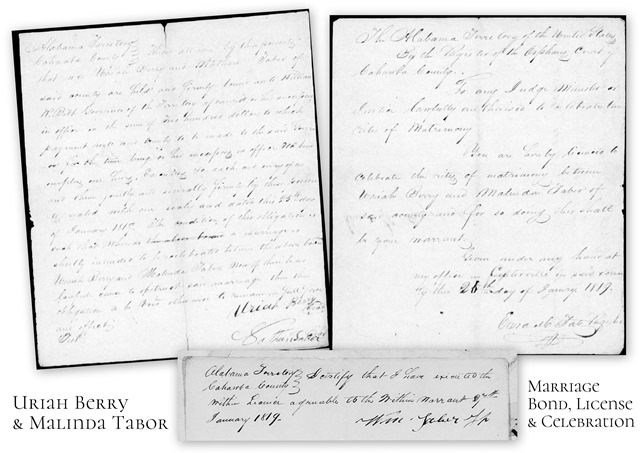 Alabama Territory
Cahawba County Know all men by these presents
that we Uriah Berry and Tabor of
said county are held and firmly bound unto William
W. Bibb Governor of the Territory of and his successors
in office in the sum of five hundred dollars to which
payment well and truly to be made to the said
or for the time being or his successors in office We bind
ourselves our heirs &c each and every of us
and them jointly and severally firmly by these presents
with our seals and dated this 25th day
of January 1819. The condition of this obligation is
such that Whereas a marriage is
shortly intended to be celebrated between the above bound
Uriah Berry and Malinda Tabor Now if there be no
lawful cause to obstruct said marriage then this
obligation to be void otherwise to remain in full force
and effect
Test
Uriah Berry
The Alabama Territory of the United States
By the Register of the Orphans Court of
Cahawba County.
To any Judge Minister or
Justice lawfully authorised to celebrate the
rites of Matrimony
You are hereby licensed to
celebrate the rites of matrimony between
Uriah Berry and Malinda Tabor of
said county and for so doing this shall
be your warrant.
Given under my hand at
my office in in said county
this 25th day of January 1819.
Alabama Territory
Cahawba County I certify that I have executed the
within Licence agreeable to the Within Warrant 27th
January 1819.
Wm J P
Uriah Berry
& Malinda Tabor
Marriage
Bond, License
& Celebration